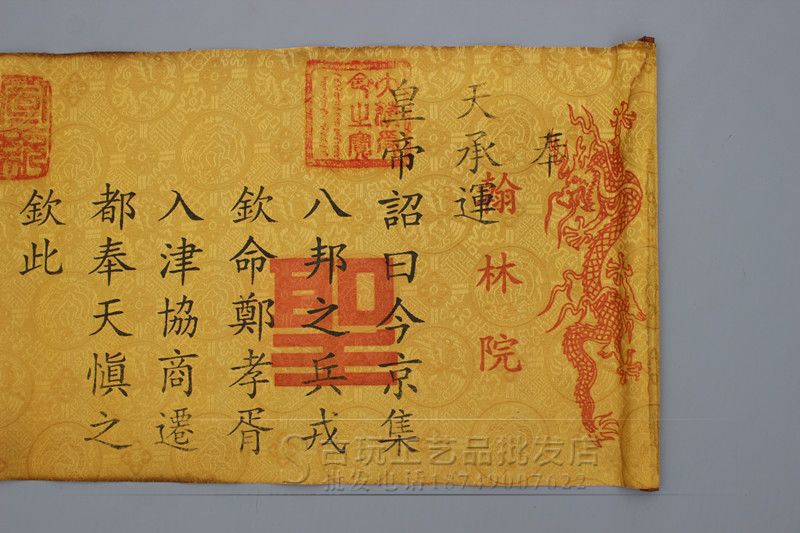 奉
天承運
皇帝詔曰今京集
八邦之兵戎
欽命鄭孝胥
入津協商遷
都奉天慎之
欽此
翰林院
古玩工艺品批发店
批发电话